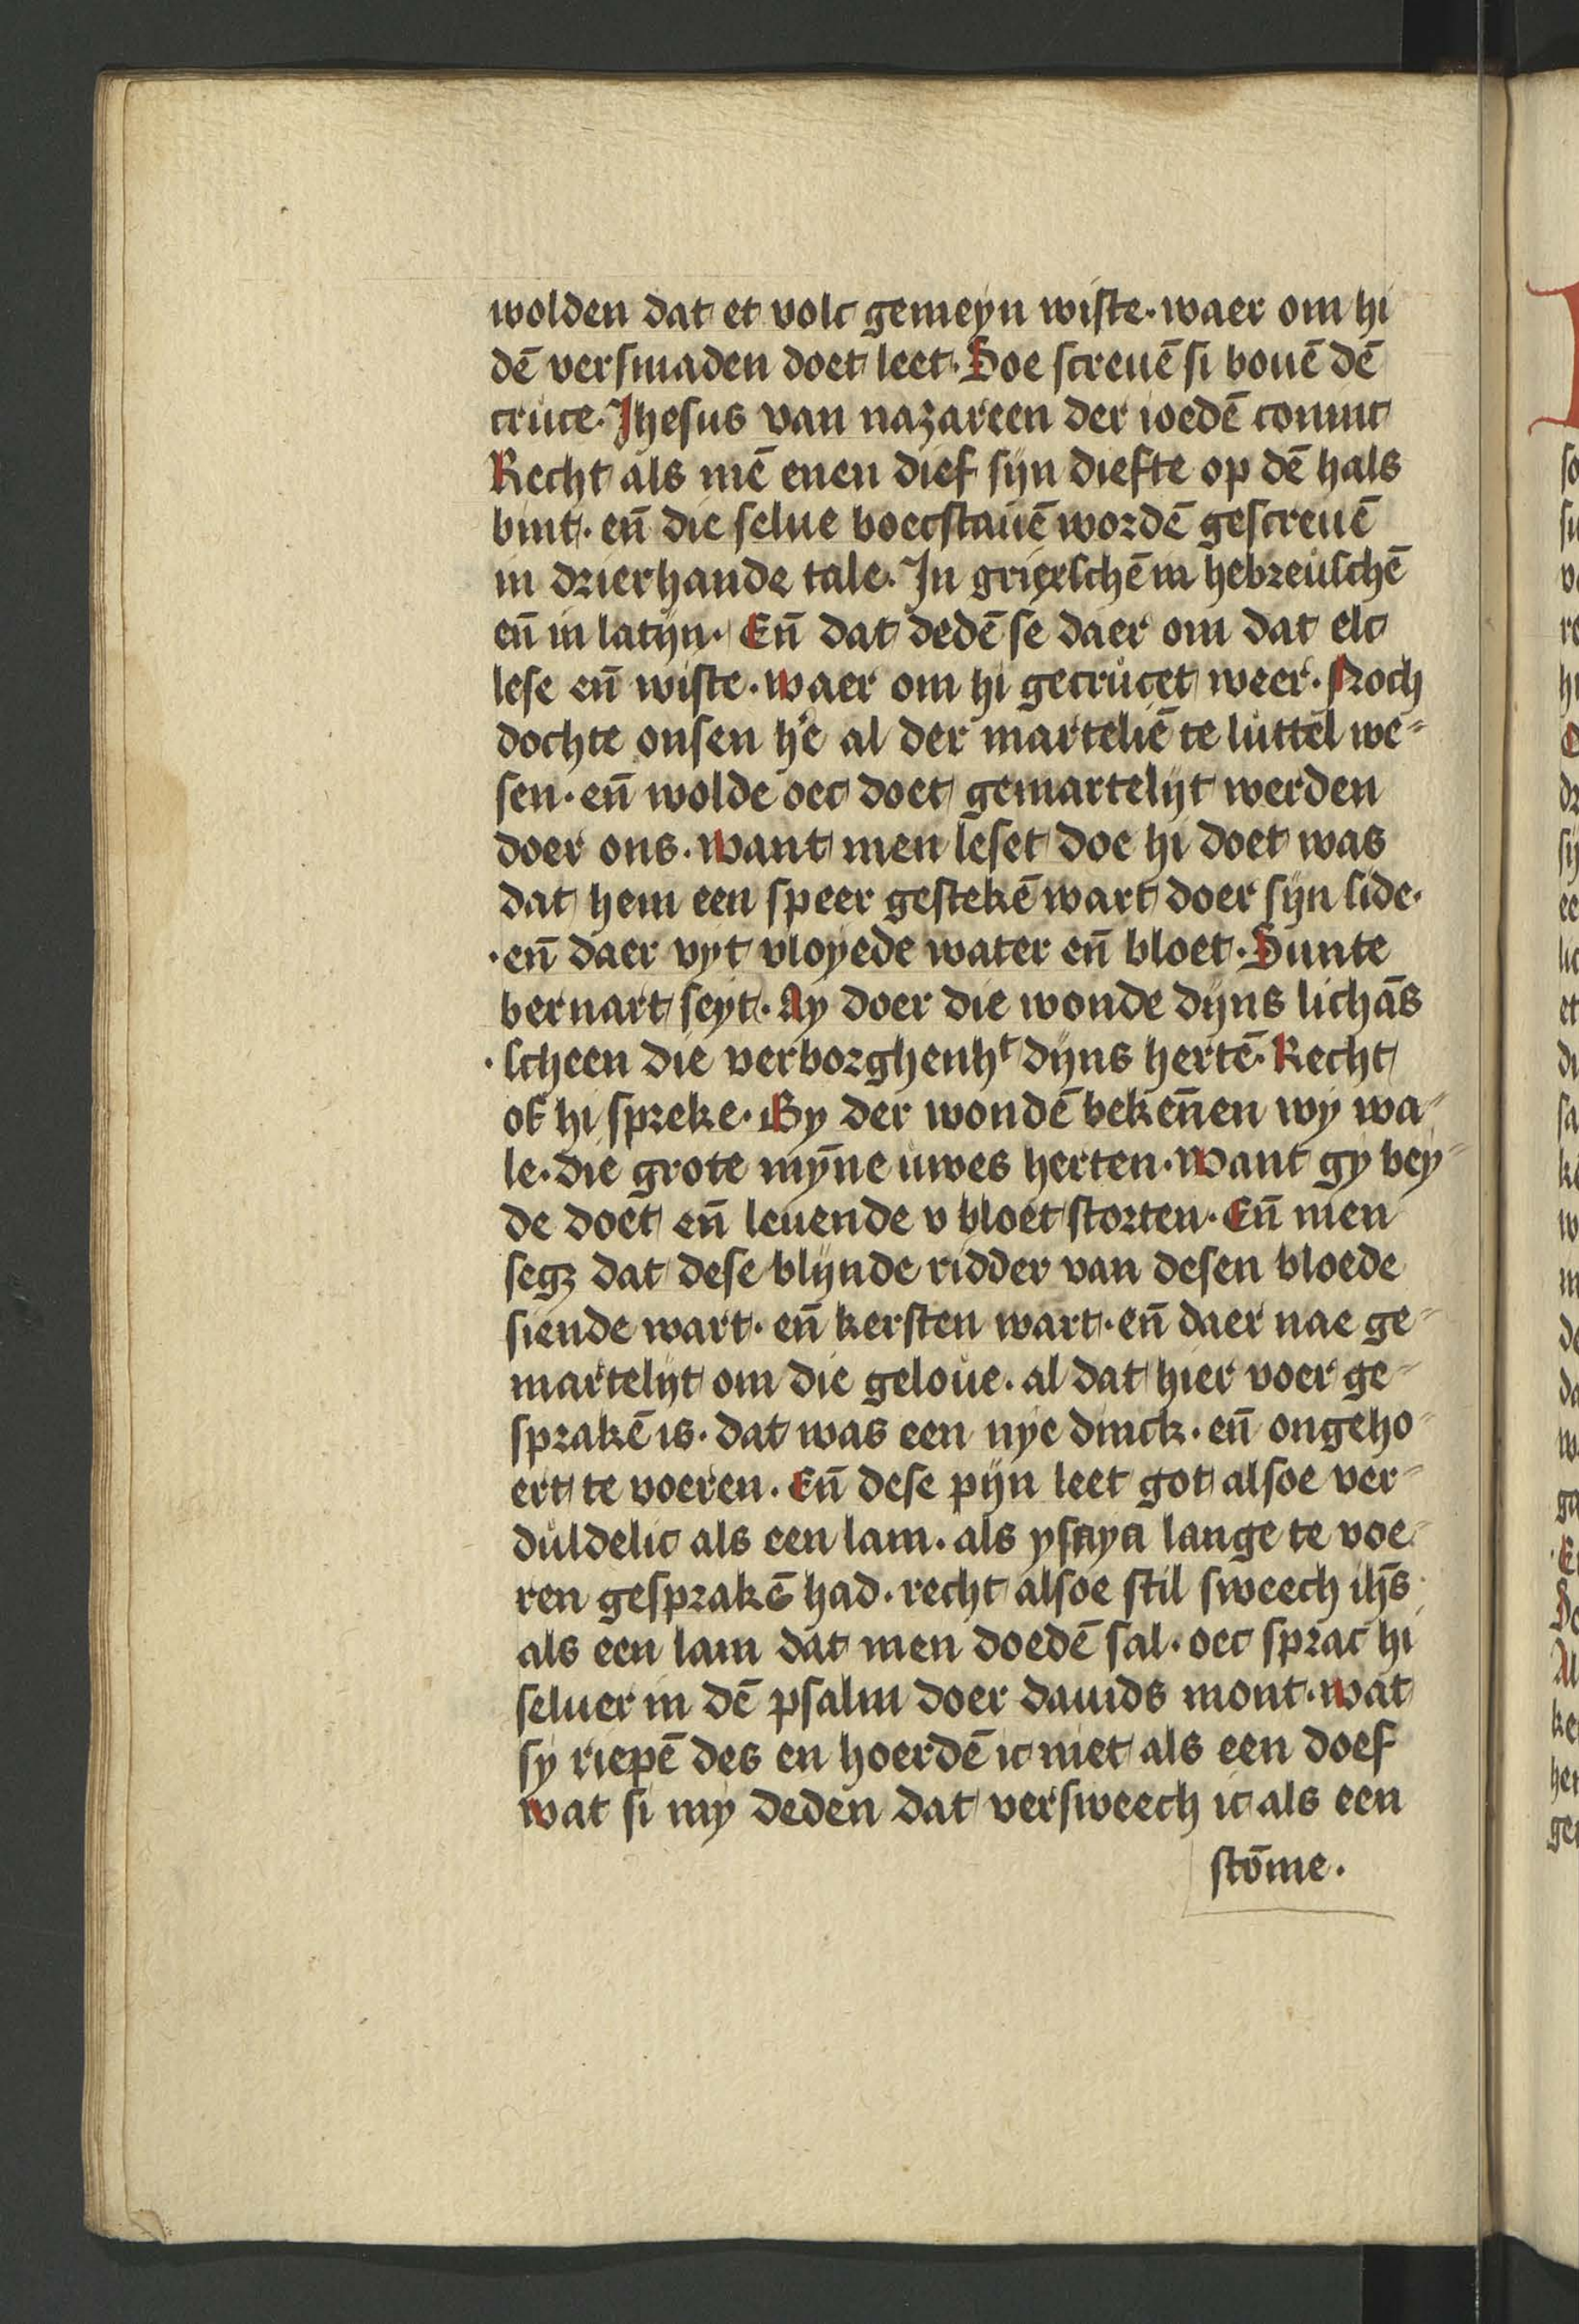 wolden dat et volc gemeyn wiste· waer om hi
dē versmaden doet leet· Doe screuē si bouē dē
cruce· Jhesus van nazareen der ioedē coninc
Recht als mē enen dief sijn diefte op dē hals
bint· en̄ die selue boecstauē wordē gescreuē
in drierhande tale· In griexschē in hebreuschē
en̄ in latijn· En̄ dat dedē se daer om dat elc
lese en̄ wiste· waer om hi gecrucet weer· Noch
dochte onsen h'e al der marteliē te luttel we⸗
sen· en̄ wolde oec doet gemartelijt werden
doer ons· want men leset doe hi doet was
dat hem een speer gestekē wart doer sijn side·
·en̄ daer vyt vloyede water en̄ bloet· Sunte
bernart seyt· Ay doer die wonde dijns lichās
·scheen die verborghenhᵗ dijns hertē· Recht
of hi spreke· By der wondē beken̄en wy wa⸗
le· die grote mȳne uwes herten· want gy bey⸗
de doet en̄ leuende v bloet storten· En̄ men
segꝫ dat dese blijnde ridder van desen bloede
siende wart· en̄ kersten wart· en̄ daer nae ge⸗
martelijt om die geloue· al dat hier voer ge⸗
sprakē is· dat was een nye dinck· en̄ ongeho⸗
ert te voeren· En̄ dese pijn leet got alsoe ver⸗
duldelic als een lam· als ysaya lange te voe⸗
ren gesprakē had· recht alsoe stil sweech ih̄s
als een lam dat men doedē sal· oec sprac hi
seluer in dē psalm doer dauids mont· wat
sy riepē des en hoerdē ic niet als een doef
wat si my deden dat versweech ic als een
stōme·